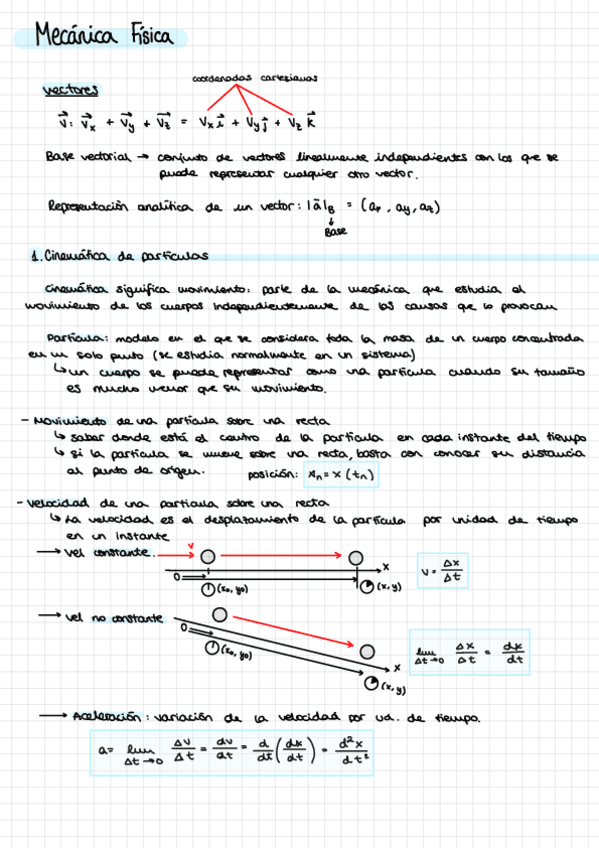 Mecánica Física
coordenadas cartesianas
vectores
v⃗: v⃗x + v⃗y + v⃗z = Vx i⃗ + Vy j⃗ + Vz k⃗
Base vectorial → conjunto de vectores linealmente independientes con los que se
puede representar cualquier otro vector.
Representación analítica de un vector: |ā|B = (ar, ay, az)
↓
Base
1. Cinemática de partículas
Cinemática significa movimiento: parte de la mecánica que estudia el
movimiento de los cuerpos independientemente de las causas que lo provocan
Partícula: modelo en el que se considera toda la masa de un cuerpo concentrada
en un solo punto (se estudia normalmente en un sistema)
↳ un cuerpo se puede representar como una partícula cuando su tamaño
es mucho menor que su movimiento.
- Movimiento de una partícula sobre una recta
↳ saber donde está el centro de la partícula en cada instante del tiempo
↳ si la partícula se mueve sobre una recta, basta con conocer su distancia
al punto de origen. posición: xn = x (tn)
- Velocidad de una partícula sobre una recta
↳ La velocidad es el desplazamiento de la partícula por unidad de tiempo
en un instante
→ vel constante. v
x
0
(x0, y0) (x, y)
v = Δx/Δt
→ vel no constante
0
(x0, y0)
x
(x, y)
lim Δt→0 Δx/Δt = dx/dt
→ Aceleración: variación de la velocidad por ud. de tiempo.
a = lim Δt→0 Δv/Δt = dv/dt = d/dt (dx/dt) = d²x/dt²